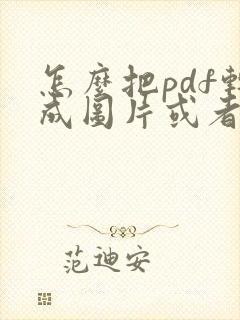 怎麼把pdf轉
成圖片或者
范迪安